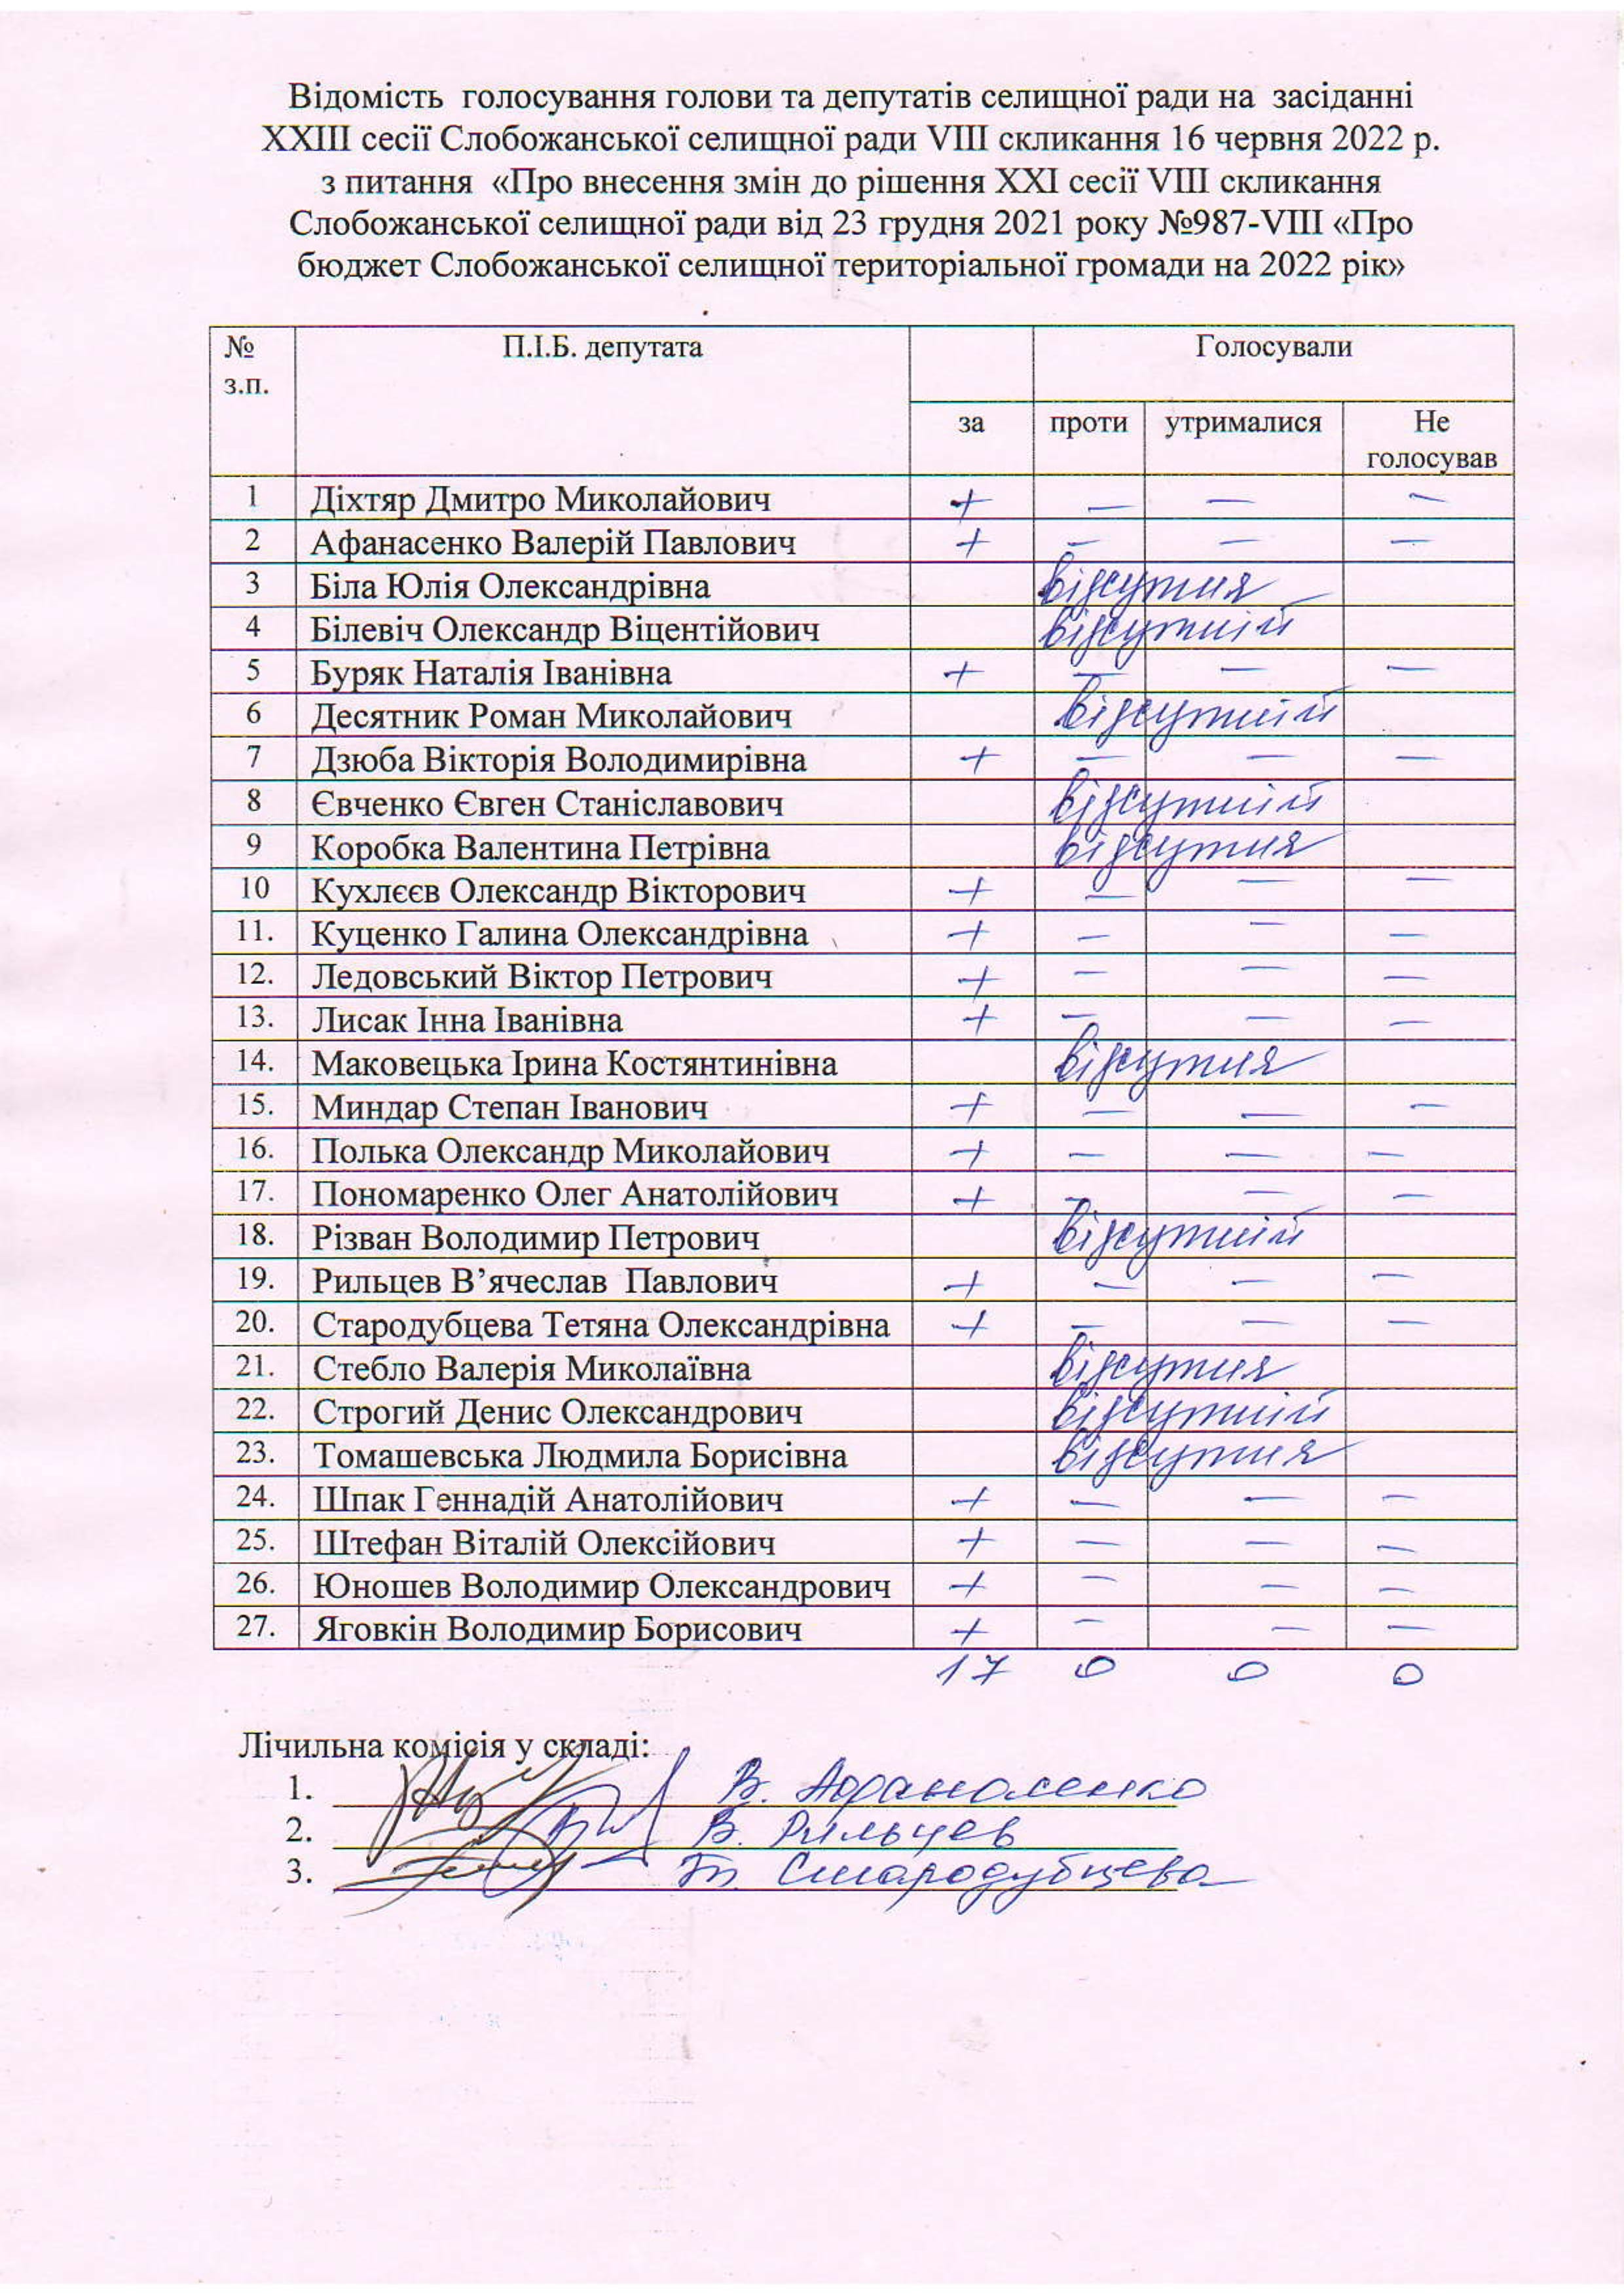 Відомість голосування голови та депутатів селищної ради на засіданні
XXIII сесії Слобожанської селищної ради VIII скликання 16 червня 2022 р.
з питання «Про внесення змін до рішення XXI сесії VIII скликання
Слобожанської селищної ради від 23 грудня 2021 року №987-VIII «Про
бюджет Слобожанської селищної територіальної громади на 2022 рік»
№ П.І.Б. депутата Голосували
з.п.
за проти утрималися Не
голосував
1 Діхтяр Дмитро Миколайович + — — —
2 Афанасенко Валерій Павлович + — — —
3 Біла Юлія Олександрівна відсутня
4 Білевіч Олександр Віцентійович відсутній
5 Буряк Наталія Іванівна + — — —
6 Десятник Роман Миколайович відсутній
7 Дзюба Вікторія Володимирівна + — — —
8 Євченко Євген Станіславович відсутній
9 Коробка Валентина Петрівна відсутня
10 Кухлєєв Олександр Вікторович + — — —
11. Куценко Галина Олександрівна + — — —
12. Ледовський Віктор Петрович + — — —
13. Лисак Інна Іванівна + — — —
14. Маковецька Ірина Костянтинівна відсутня
15. Миндар Степан Іванович + — — —
16. Полька Олександр Миколайович + — — —
17. Пономаренко Олег Анатолійович + — — —
18. Різван Володимир Петрович відсутній
19. Рильцев В’ячеслав Павлович + — — —
20. Стародубцева Тетяна Олександрівна + — — —
21. Стебло Валерія Миколаївна відсутня
22. Строгий Денис Олександрович відсутній
23. Томашевська Людмила Борисівна відсутня
24. Шпак Геннадій Анатолійович + — — —
25. Штефан Віталій Олексійович + — — —
26. Юношев Володимир Олександрович + — — —
27. Яговкін Володимир Борисович + — — —
17 0 0 0
Лічильна комісія у складі:
1. В. Афанасенко
2. В. Рильцев
3. Т. Стародубцева